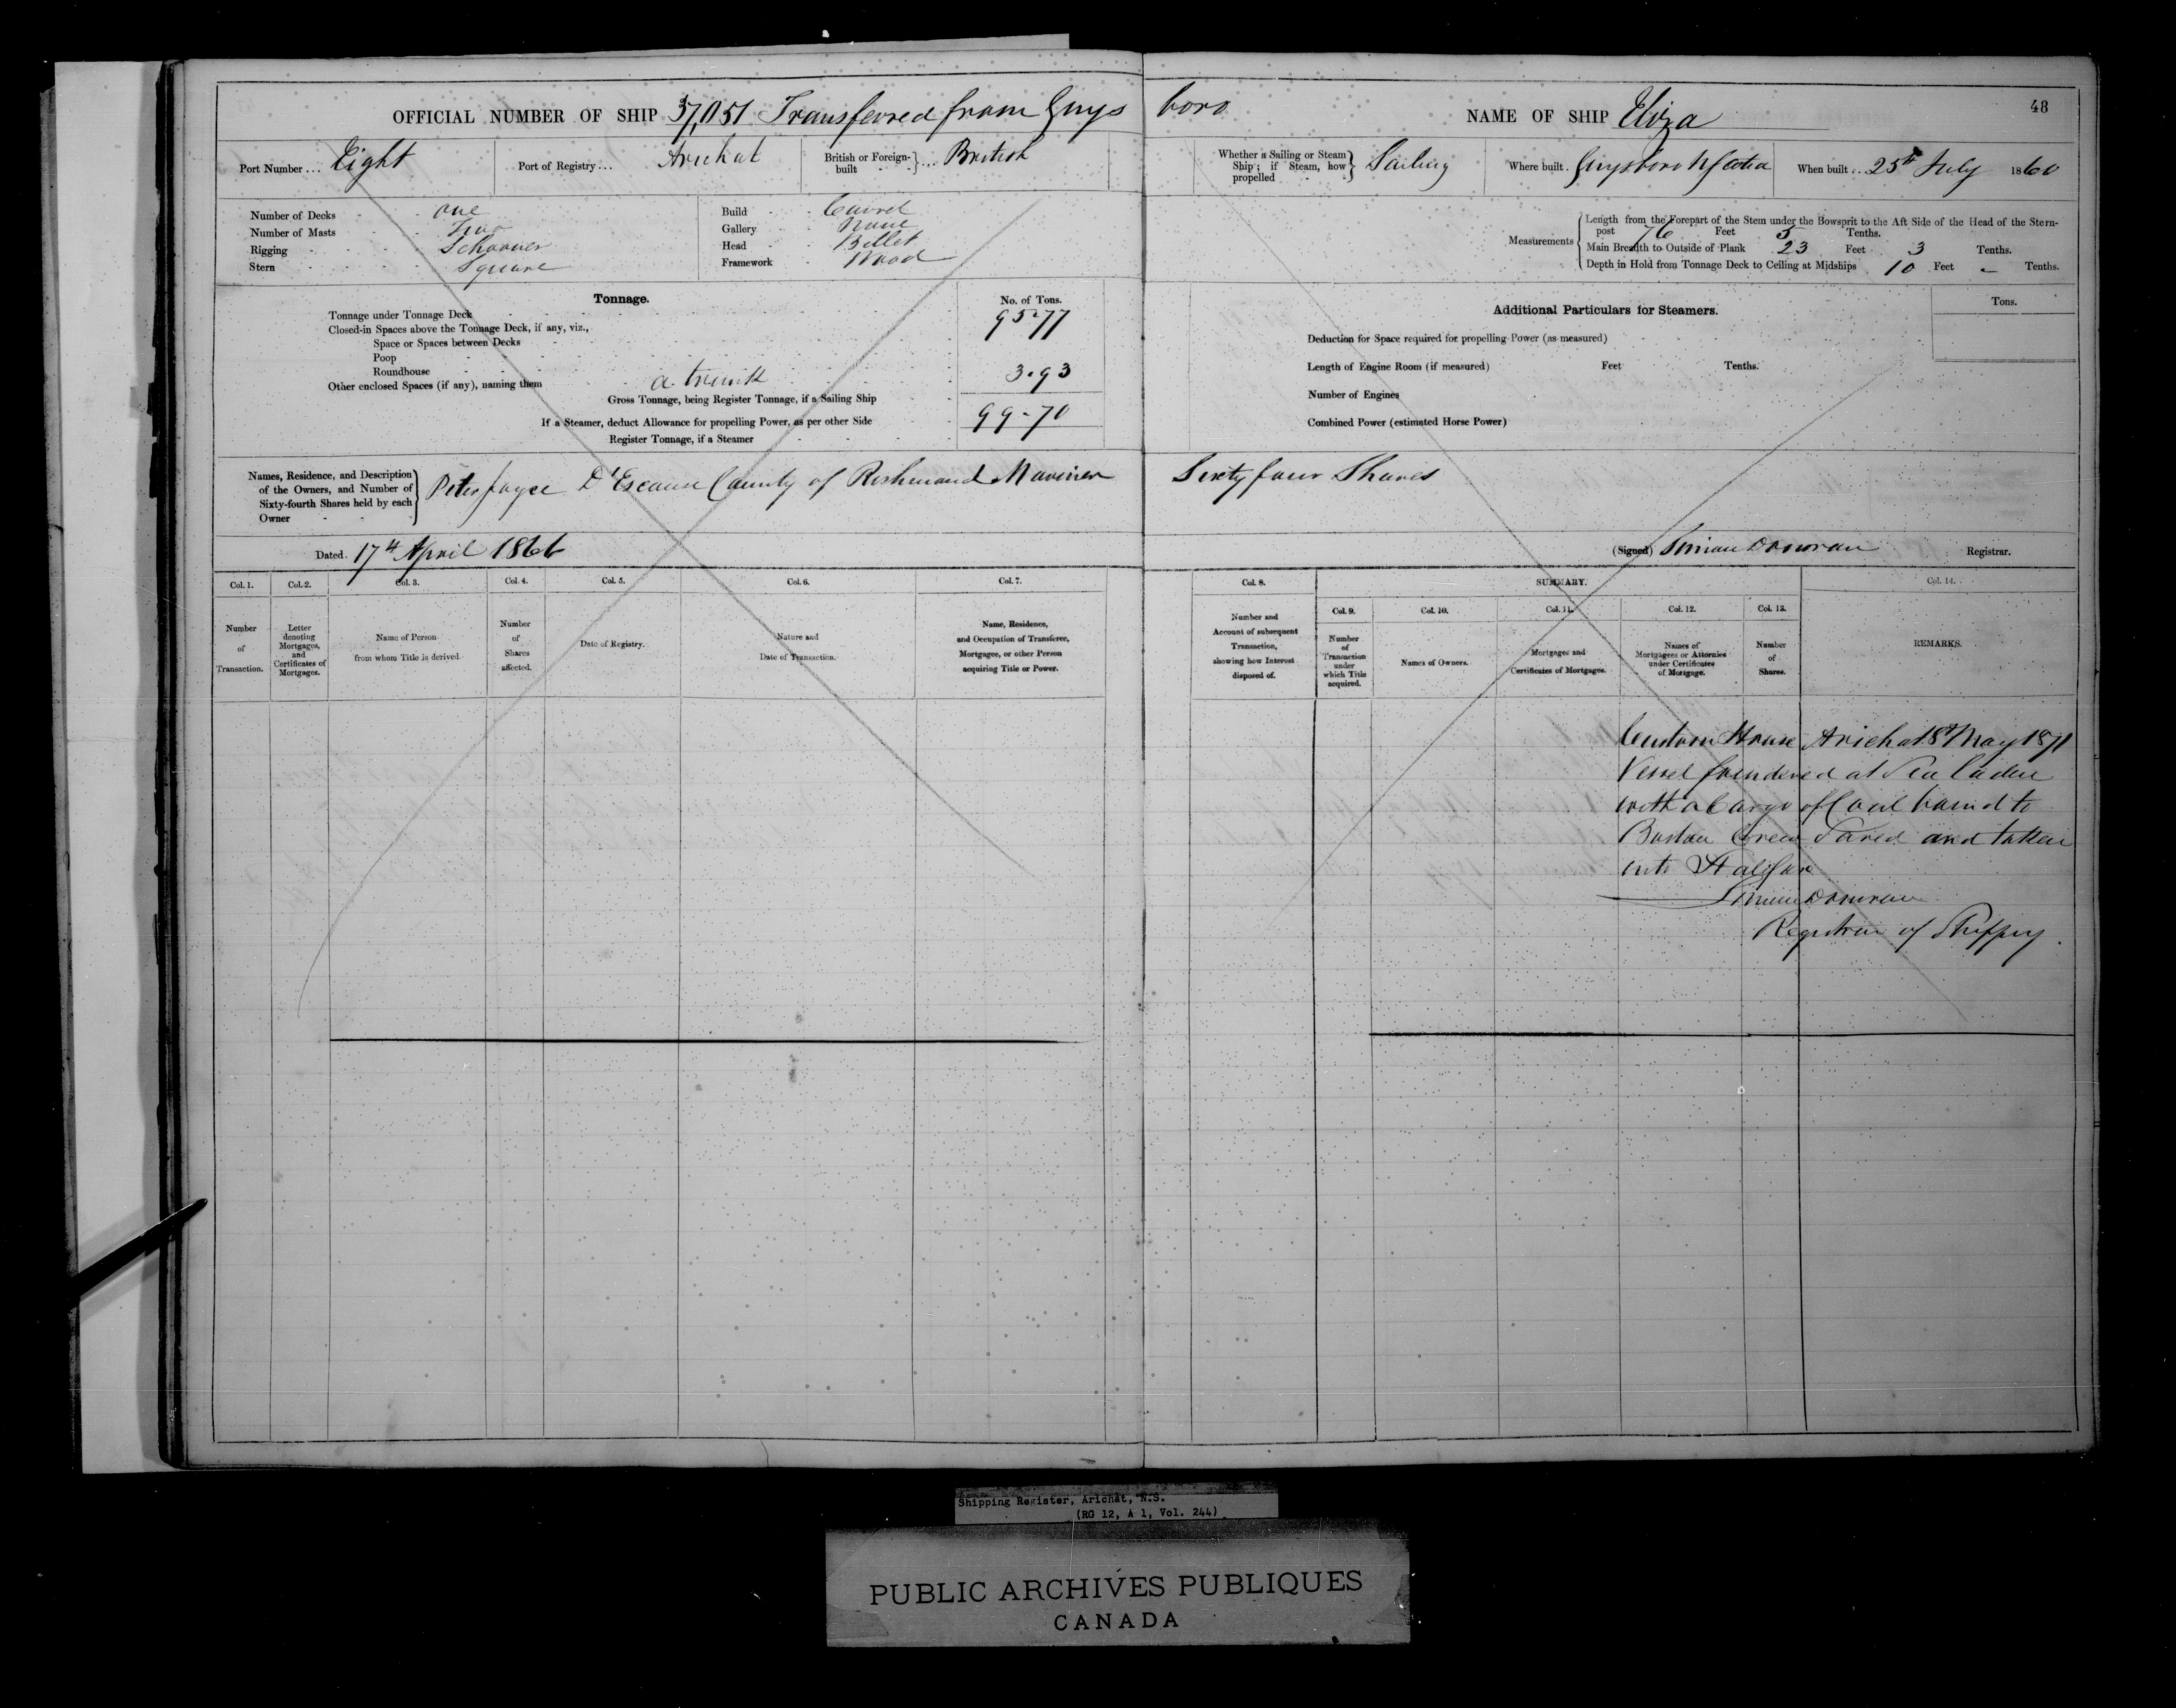 OFFICIAL NUMBER OF SHIP 37,051 Transferred from Guysboro NAME OF SHIP Eliza 48
Port Number ... Eight Port of Registry ... Arichat British or Foreign-built } ... British Whether a Sailing or Steam Ship; if Steam, how propelled } Sailing Where built . Guysboro N Scotia When built .. 25th July 1860
Number of Decks one
Number of Masts Two
Rigging Schooner
Stern Square
Build Carvel
Gallery None
Head Billet
Framework Wood
Measurements { Length from the Forepart of the Stem under the Bowsprit to the Aft Side of the Head of the Stern-
post 76 Feet 5 Tenths.
Main Breadth to Outside of Plank 23 Feet 3 Tenths.
Depth in Hold from Tonnage Deck to Ceiling at Midships 10 Feet - Tenths.
Tonnage. No. of Tons.
Tonnage under Tonnage Deck 95-77
Closed-in Spaces above the Tonnage Deck, if any, viz.,
Space or Spaces between Decks
Poop
Roundhouse
Other enclosed Spaces (if any), naming them a trunk 3.93
Gross Tonnage, being Register Tonnage, if a Sailing Ship 99-70
If a Steamer, deduct Allowance for propelling Power, as per other Side
Register Tonnage, if a Steamer
Additional Particulars for Steamers. Tons.
Deduction for Space required for propelling Power (as measured)
Length of Engine Room (if measured) Feet Tenths.
Number of Engines
Combined Power (estimated Horse Power)
Names, Residence, and Description of the Owners, and Number of Sixty-fourth Shares held by each Owner } Peter Joyce D'Escause County of Richmond Mariner Sixty four Shares
Dated 17th April 1866 (Signed) Simon Donovan Registrar.
Col. 1. Col. 2. Col. 3. Col. 4. Col. 5. Col. 6. Col. 7. Col. 8. SUMMARY. Col. 14.
Col. 9. Col. 10. Col. 11. Col. 12. Col. 13.
Number of Transaction.
Letter denoting Mortgages, and Certificates of Mortgages.
Name of Person from whom Title is derived.
Number of Shares affected.
Date of Registry.
Nature and Date of Transaction.
Name, Residence, and Occupation of Transferee, Mortgagee, or other Person acquiring Title or Power.
Number and Account of subsequent Transaction, showing how Interest disposed of.
Number of Transaction under which Title acquired.
Names of Owners.
Mortgages and Certificates of Mortgages.
Names of Mortgagees or Attornies under Certificates of Mortgage.
Number of Shares.
REMARKS.
Custom House Arichat 18th May 1871
Vessel foundered at Sea laden
with a Cargo of Coal bound to
Boston Crew Saved and taken
into Halifax
Simon Donovan
Registrar of Shippg
Shipping Register, Arichat, N.S.
(RG 12, A 1, Vol. 244)
PUBLIC ARCHIVES PUBLIQUES
CANADA